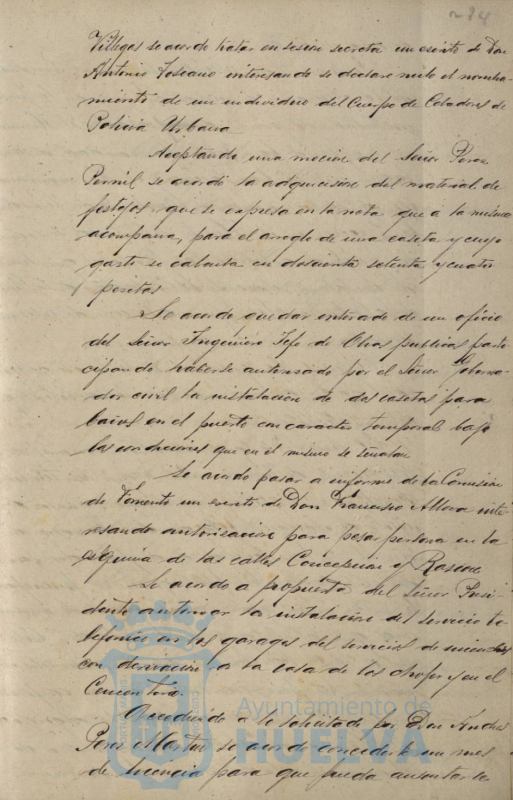 284
Villegas se acordo tratar en sesion secreta un escrito de Don
Antonio Toscano interesando se declare nulo el nombra-
miento de un individuo del Cuerpo de Celadores de
Policia Urbana
Aceptando una mocion del Señor Perez
Pernil se acordó la adquisicion del material de
festejos que se expresa en la nota que a la misma
acompaña, para el arreglo de una caseta y cuyo
gasto se calcula en doscientas setenta y cuatro
pesetas
Se acordo quedar enterado de un oficio
del Señor Ingeniero Jefe de Obras publicas parti-
cipando haberse autorizado por el Señor Goberna-
dor civil la instalacion de dos casetas para
baños en el puerto con caracter temporal bajo
las condiciones que en el mismo se señalan
Se acordo pasar a informe de la Comision
de Fomento un escrito de Don Francisco inte-
resando autorizacion para pesa persona en la
esquina de las calles Concepcion y Rascon
Se acordo a propuesta del Señor Presi-
dente autorizar la instalacion del servicio te-
lefonico en los garages del servicio de incendios
con derivacion a la casa de los chofer y en el
Accediendo a lo solicitado por Don Andres
Perez Martin se acordo concederle un mes
de licencia para que pueda ausentarse
Ayuntamiento de
HUELVA